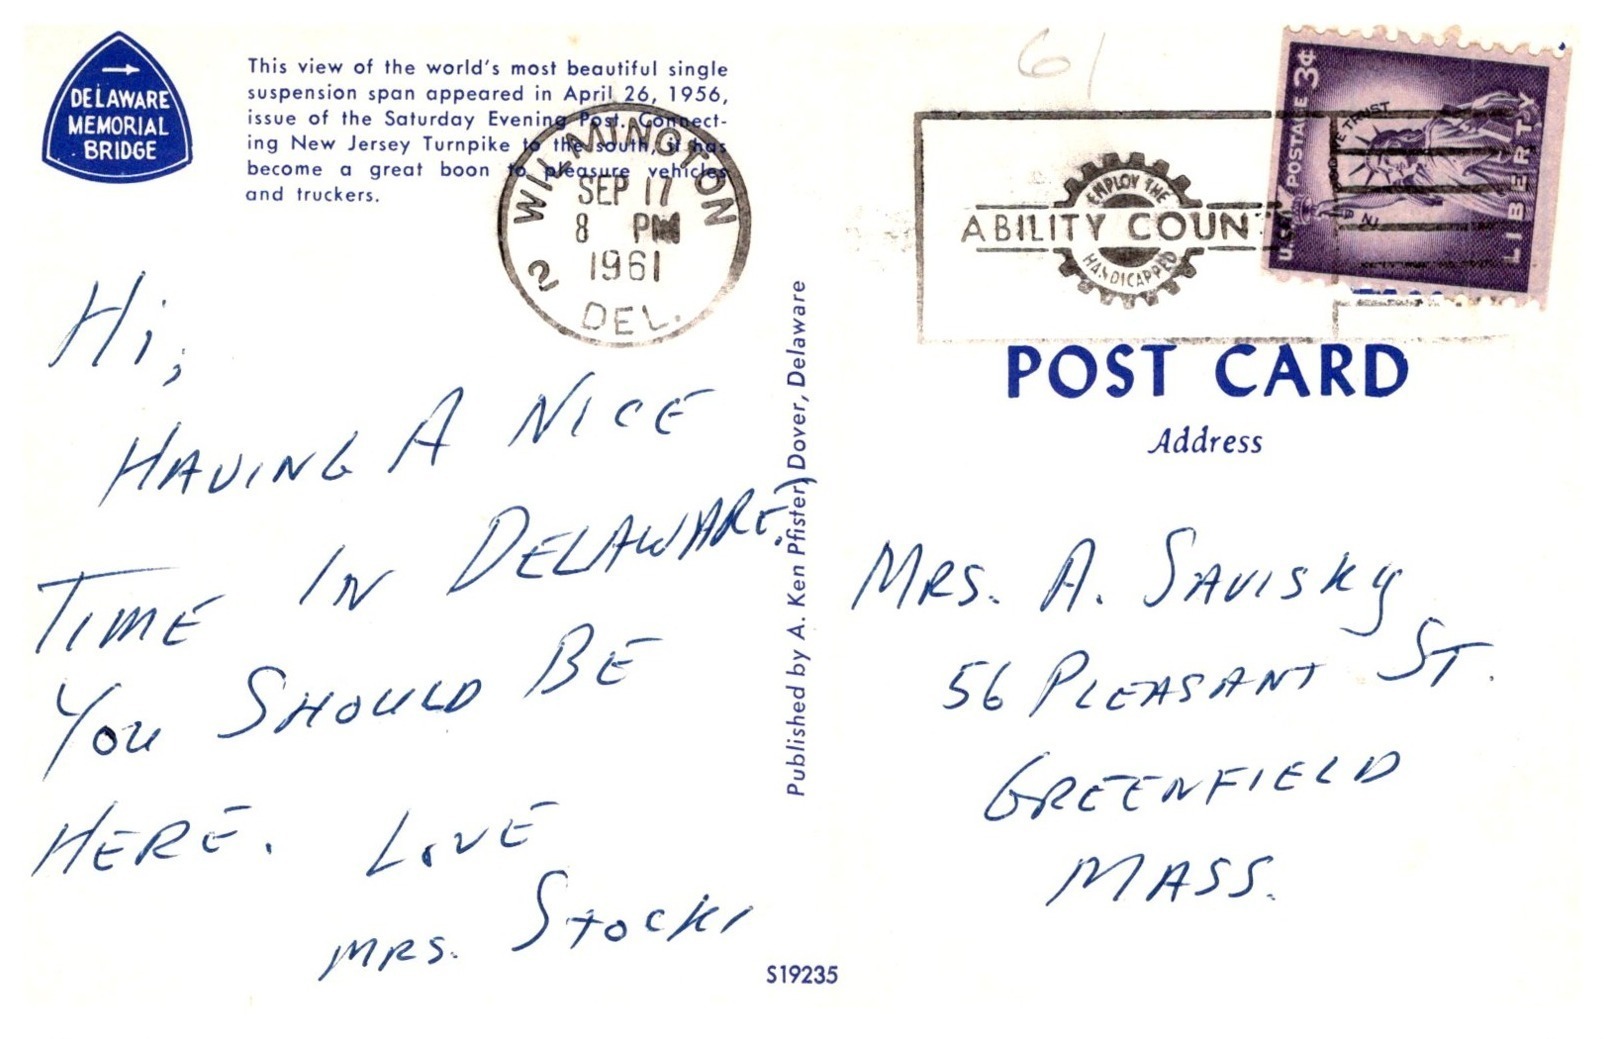 DELAWARE
MEMORIAL
BRIDGE
This view of the world's most beautiful single
suspension span appeared in April 26, 1956,
issue of the Saturday Evening Post. Connect-
ing New Jersey Turnpike to the south, it has
become a great boon to pleasure vehicles
and truckers.
WILMINGTON
SEP 17
8 PM
1961
2
DEL.
61
EMPLOY THE
ABILITY COUN
HANDICAPPED
U.S.A. POSTAGE 3¢
WE TRUST
LIBERTY
POST CARD
Address
Hi,
HAVING A NICE
TIME IN DELAWARE.
YOU SHOULD BE
HERE. LOVE
MRS. STOCKI
Published by A. Ken Pfister, Dover, Delaware
MRS. A. SAVISKY
56 PLEASANT ST.
GREENFIELD
MASS.
S19235